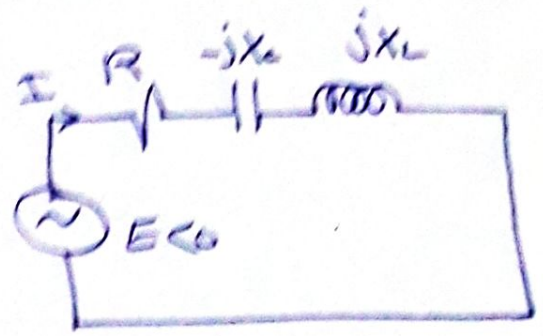 R -jXc jXL
I
E<0